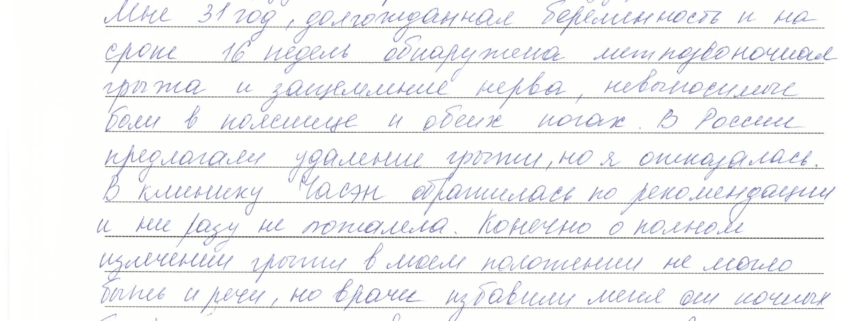 Мне 31 год, долгожданная беременность и на
сроке 16 недель обнаружена межпозвоночная
грыжа и защемление нерва, невыносимые
боли в пояснице и обеих ногах. В России
предлагали удаление грыжи, но я отказалась.
В клинику Часэн обратилась по рекомендации
и ни разу не пожалела. Конечно о полном
излечении грыжи в моем положении не могло
быть и речи, но врачи избавили меня от ночных